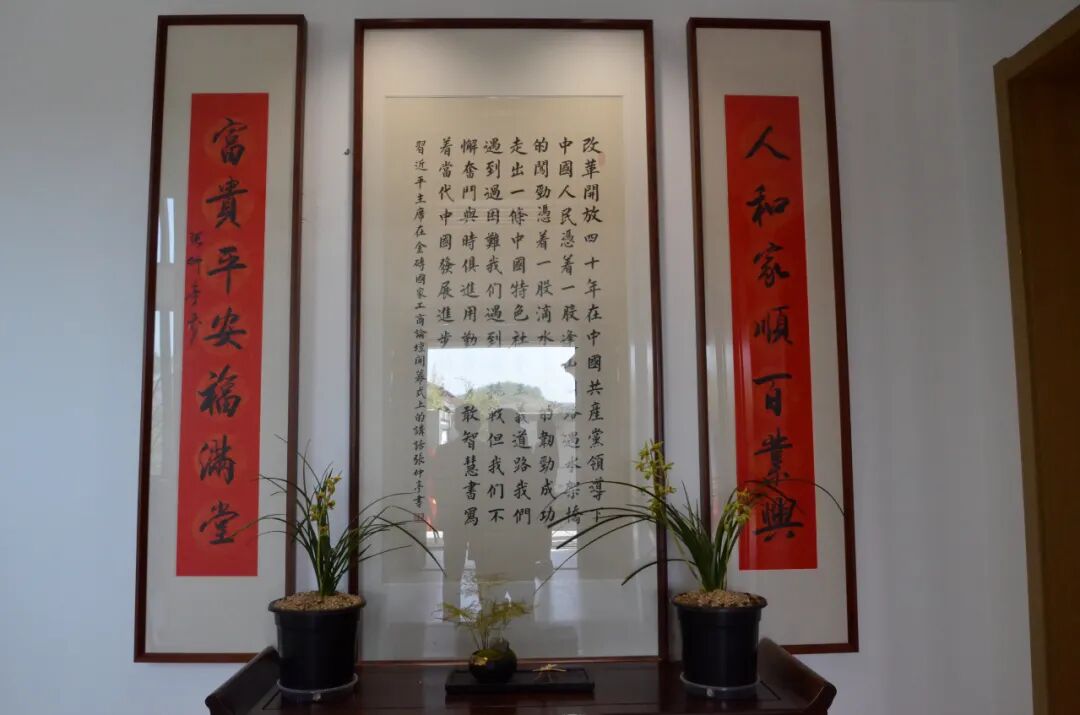 人和家順百業興
改革開放四十年在中國共產黨領導下
中國人民憑着一股逢路遇水架橋
的闖勁憑着一股滴水的韌勁成功
走出一條中國特色社義道路我們
遇到過困難我們遇到挑戰但我們不
懈奮鬥與時俱進用勤敢智慧書寫
着當代中國發展進步
習近平主席在金磚國家工商論壇開幕式上的講話張仲亭書
富貴平安福滿堂
張仲亭書